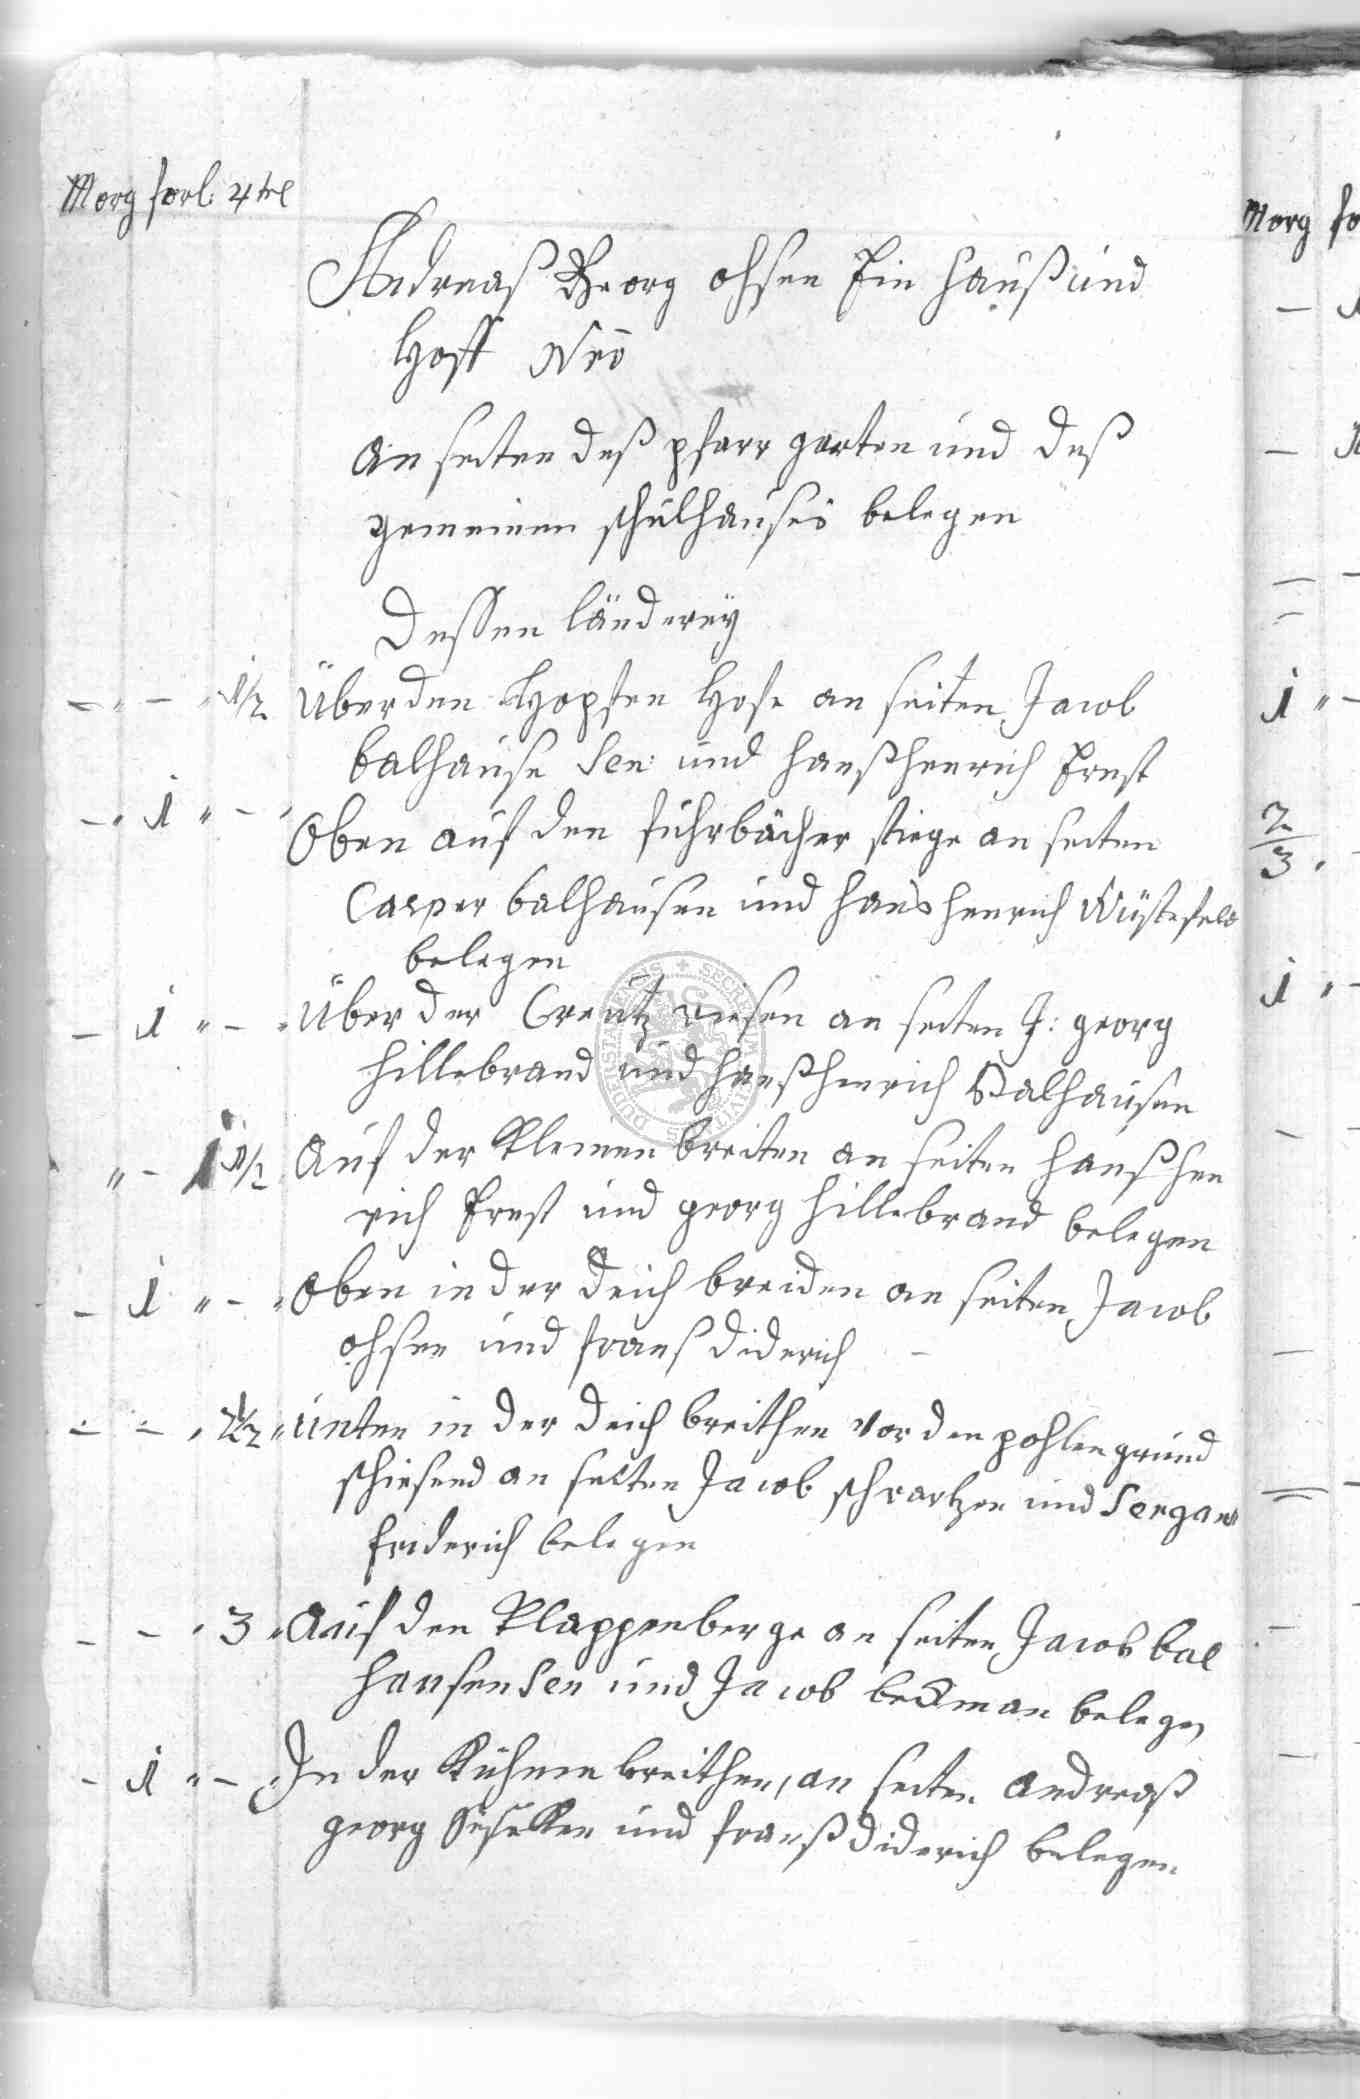 Morg forl: 4tel
Andreaß Georg ohsen Ein Hauß und
Hoff Nro
an seiten deß pfarr garten und deß
gemeinen schulhauses belegen
Dessen länderey
- " - " 1/2 Über den Hopfen Hofe an seiten Jacob
balhause Sen: und hanß henrich Ernst
- " 1 " - Oben auf den fuhrbächer stiege an seiten
Casper balhausen und hans henrich Wüstefeld
belegen
- 1 " - " Über der Creutz wiesen an seiten J: georg
hillebrand und hanß henrich Balhausen
" - 1 1/2 Auf der Kleinen breiten an seiten hanß hen
rich Ernst und georg hillebrand belegen
- 1 " - " Oben in der Deich breiden an seiten Jacob
ohsen und franß diderich -
- - " 2 1/2 " unten in der deich breithen vor den pohlen grund
schiesend an seiten Jacob schwartzen und
friderich belegen
- - " 3 " Auf den Klappenberge an seiten Jacob bal
hausen Sen und Jacob beckman belegen
- 1 " - In der Kuhme breithen, an seiten andreaß
georg und franß diderich belegen
Morg fo
- 1
-
-
1 " -
2/3 "
1 " -
DUDERSTADENSIS + SECRETVM CIVITATIS